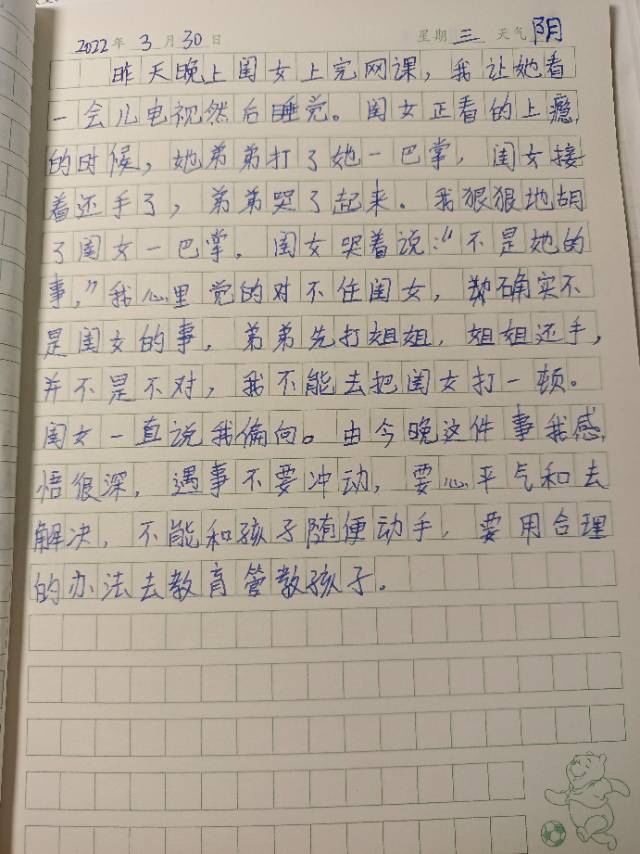 2022年 3月 30日 星期 三 天气 阴
昨天晚上闺女上完网课，我让她看
一会儿电视然后睡觉。闺女正看的上瘾
的时候，她弟弟打了她一巴掌，闺女接
着还手了，弟弟哭了起来．我狠狠地胡
了闺女一巴掌．闺女哭着说：“不是她的
事，”我心里觉的对不住闺女，确实不
是闺女的事．弟弟先打姐姐．姐姐还手，
并不是不对，我不能去把闺女打一顿。
闺女一直说我偏向。由今晚这件事我感
悟很深，遇事不要冲动，要心平气和去
解决，不能和孩子随便动手．要用合理
的办法去教育管教孩子．